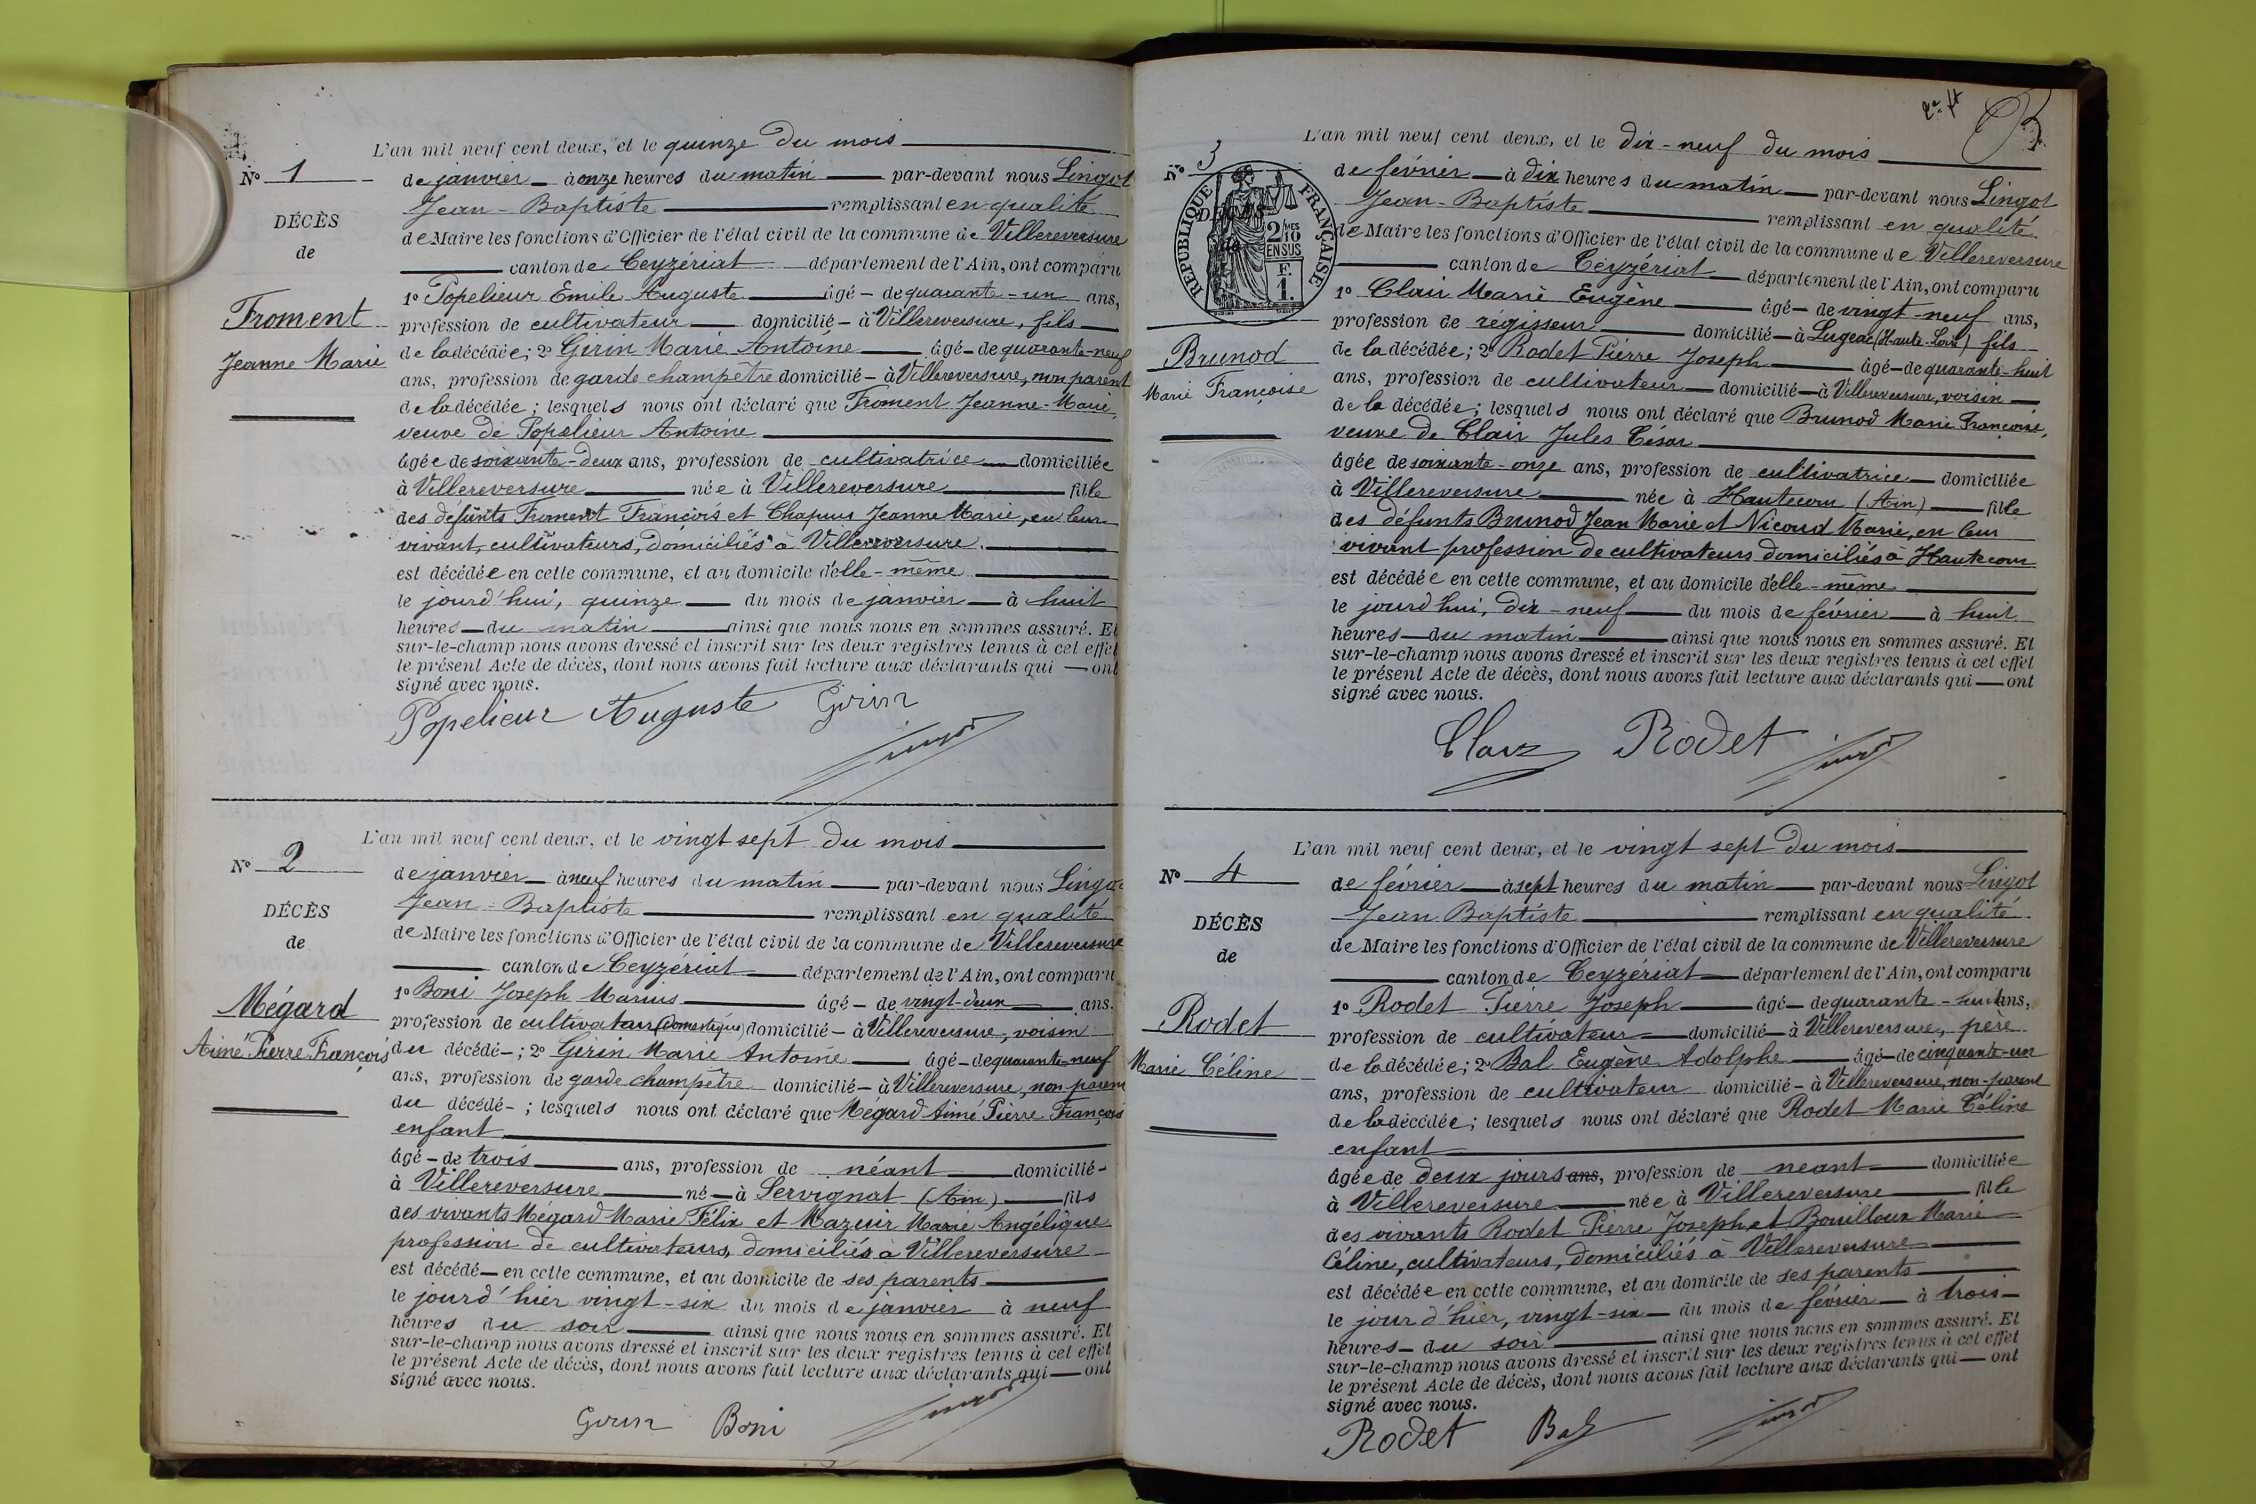 L'an mil neuf cent deux, et le quinze du mois
N° 1
de janvier à onze heures du matin par-devant nous Lingot
Jean-Baptiste remplissant en qualité
DÉCÈS
de Maire les fonctions d'Officier de l'état civil de la commune de Villereversure
de
canton de Ceyzériat département de l'Ain, ont comparu
1° Popelieur Emile Auguste âgé de quarante-un ans,
Froment
profession de cultivateur domicilié à Villereversure, fils
Jeanne Marie
de la décédée; 2° Girin Marie Antoine âgé de quarante-neuf
ans, profession de garde champêtre domicilié à Villereversure, non parent
de la décédée; lesquels nous ont déclaré que Froment Jeanne-Marie,
veuve de Popelieur Antoine
âgée de soixante-deux ans, profession de cultivatrice domiciliée
à Villereversure née à Villereversure fille
des défunts Froment François et Chapuis Jeanne Marie, en leur
vivant, cultivateurs, domiciliés à Villereversure.
est décédée en cette commune, et au domicile d'elle-même
le jourd'hui, quinze du mois de janvier à huit
heures du matin ainsi que nous nous en sommes assuré. Et
sur-le-champ nous avons dressé et inscrit sur les deux registres tenus à cet effet
le présent Acte de décès, dont nous avons fait lecture aux déclarants qui ont
signé avec nous.
Popelieur Auguste Girin
Lingot
L'an mil neuf cent deux, et le vingt sept du mois
N° 2
de janvier à neuf heures du matin par-devant nous Lingot
Jean-Baptiste remplissant en qualité
DÉCÈS
de Maire les fonctions d'Officier de l'état civil de la commune de Villereversure
de
canton de Ceyzériat département de l'Ain, ont comparu
1° Boni Joseph Marius âgé de vingt-deux ans.
Mégard
profession de cultivateur (domestique) domicilié à Villereversure, voisin
Aimé Pierre François
du décédé; 2° Girin Marie Antoine âgé de quarante-neuf
ans, profession de garde champêtre domicilié à Villereversure, non parent
du décédé; lesquels nous ont déclaré que Mégard Aimé Pierre François
enfant
âgé de trois ans, profession de néant domicilié
à Villereversure né à Servignat (Ain) fils
des vivants Mégard Marie Félix et Mazuir Marie Angélique
profession de cultivateurs, domiciliés à Villereversure
est décédé en cette commune, et au domicile de ses parents
le jourd'hier vingt-six du mois de janvier à neuf
heures du soir ainsi que nous nous en sommes assuré. Et
sur-le-champ nous avons dressé et inscrit sur les deux registres tenus à cet effet
le présent Acte de décès, dont nous avons fait lecture aux déclarants qui ont
signé avec nous.
Girin Boni Lingot
L'an mil neuf cent deux, et le dix-neuf du mois
N° 3
de février à dix heures du matin par-devant nous Lingot
Jean-Baptiste remplissant en qualité
DÉCÈS
de
RÉPUBLIQUE FRANÇAISE
2/10 MES
EN SUS
F.
1.
de Maire les fonctions d'Officier de l'état civil de la commune de Villereversure
canton de Ceyzériat département de l'Ain, ont comparu
1° Clair Marie Eugène âgé de vingt-neuf ans,
profession de régisseur domicilié à Lugeac (Haute-Loire) fils
Brunod
de la décédée; 2° Rodet Pierre Joseph âgé de quarante-huit
Marie Françoise
ans, profession de cultivateur domicilié à Villereversure, voisin
de la décédée; lesquels nous ont déclaré que Brunod Marie Françoise,
veuve de Clair Jules César
âgée de soixante-onze ans, profession de cultivatrice domiciliée
à Villereversure née à Hautecour (Ain) fille
des défunts Brunod Jean Marie et Nicoud Marie, en leur
vivant profession de cultivateurs domiciliés à Hautecour
est décédée en cette commune, et au domicile d'elle-même
le jourd'hui, dix-neuf du mois de février à huit
heures du matin ainsi que nous nous en sommes assuré. Et
sur-le-champ nous avons dressé et inscrit sur les deux registres tenus à cet effet
le présent Acte de décès, dont nous avons fait lecture aux déclarants qui ont
signé avec nous.
Clair Rodet Lingot
L'an mil neuf cent deux, et le vingt sept du mois
N° 4
de février à sept heures du matin par-devant nous Lingot
Jean Baptiste remplissant en qualité
DÉCÈS
de Maire les fonctions d'Officier de l'état civil de la commune de Villereversure
de
canton de Ceyzériat département de l'Ain, ont comparu
1° Rodet Pierre Joseph âgé de quarante-huit ans,
Rodet
profession de cultivateur domicilié à Villereversure, père
Marie Céline
de la décédée; 2° Bal Eugène Adolphe âgé de cinquante-un
ans, profession de cultivateur domicilié à Villereversure, non-parent
de la décédée; lesquels nous ont déclaré que Rodet Marie Céline
enfant
âgée de deux jours ans, profession de néant domiciliée
à Villereversure née à Villereversure fille
des vivants Rodet Pierre Joseph et Bouilloux Marie
Céline, cultivateurs, domiciliés à Villereversure
est décédée en cette commune, et au domicile de ses parents
le jour d'hier, vingt-six du mois de février à trois
heures du soir ainsi que nous nous en sommes assuré. Et
sur-le-champ nous avons dressé et inscrit sur les deux registres tenus à cet effet
le présent Acte de décès, dont nous avons fait lecture aux déclarants qui ont
signé avec nous.
Rodet Bal Lingot